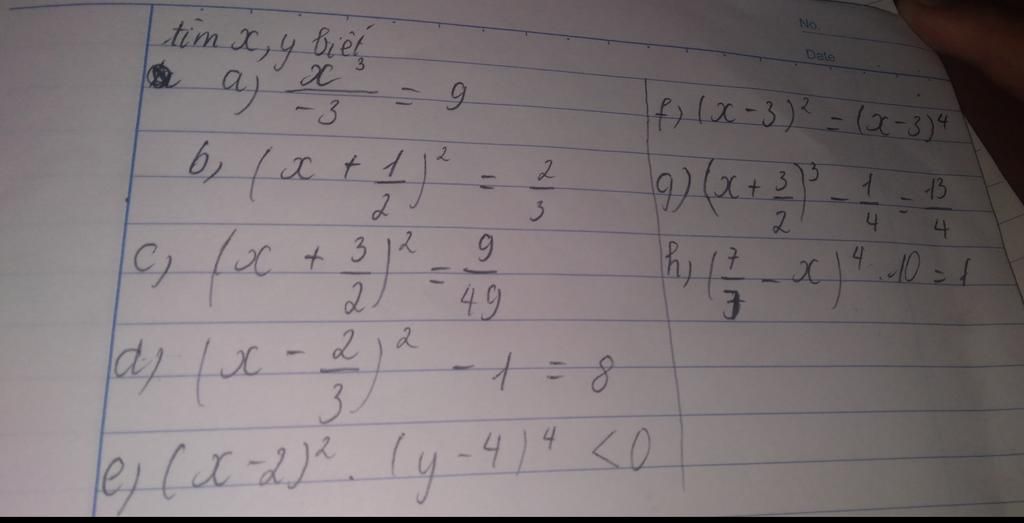 No.
Date
tìm x, y biết
a) x³/-3 = 9
b, (x + 1/2)² = 2/3
c, (x + 3/2)² = 9/49
d) (x - 2/3)² - 1 = 8
e) (x-2)² . (y-4)⁴ < 0
f, (x-3)² = (x-3)⁴
g) (x + 3/2)³ - 1/4 = 13/4
h, (7/7 - x)⁴ . 10 = 1